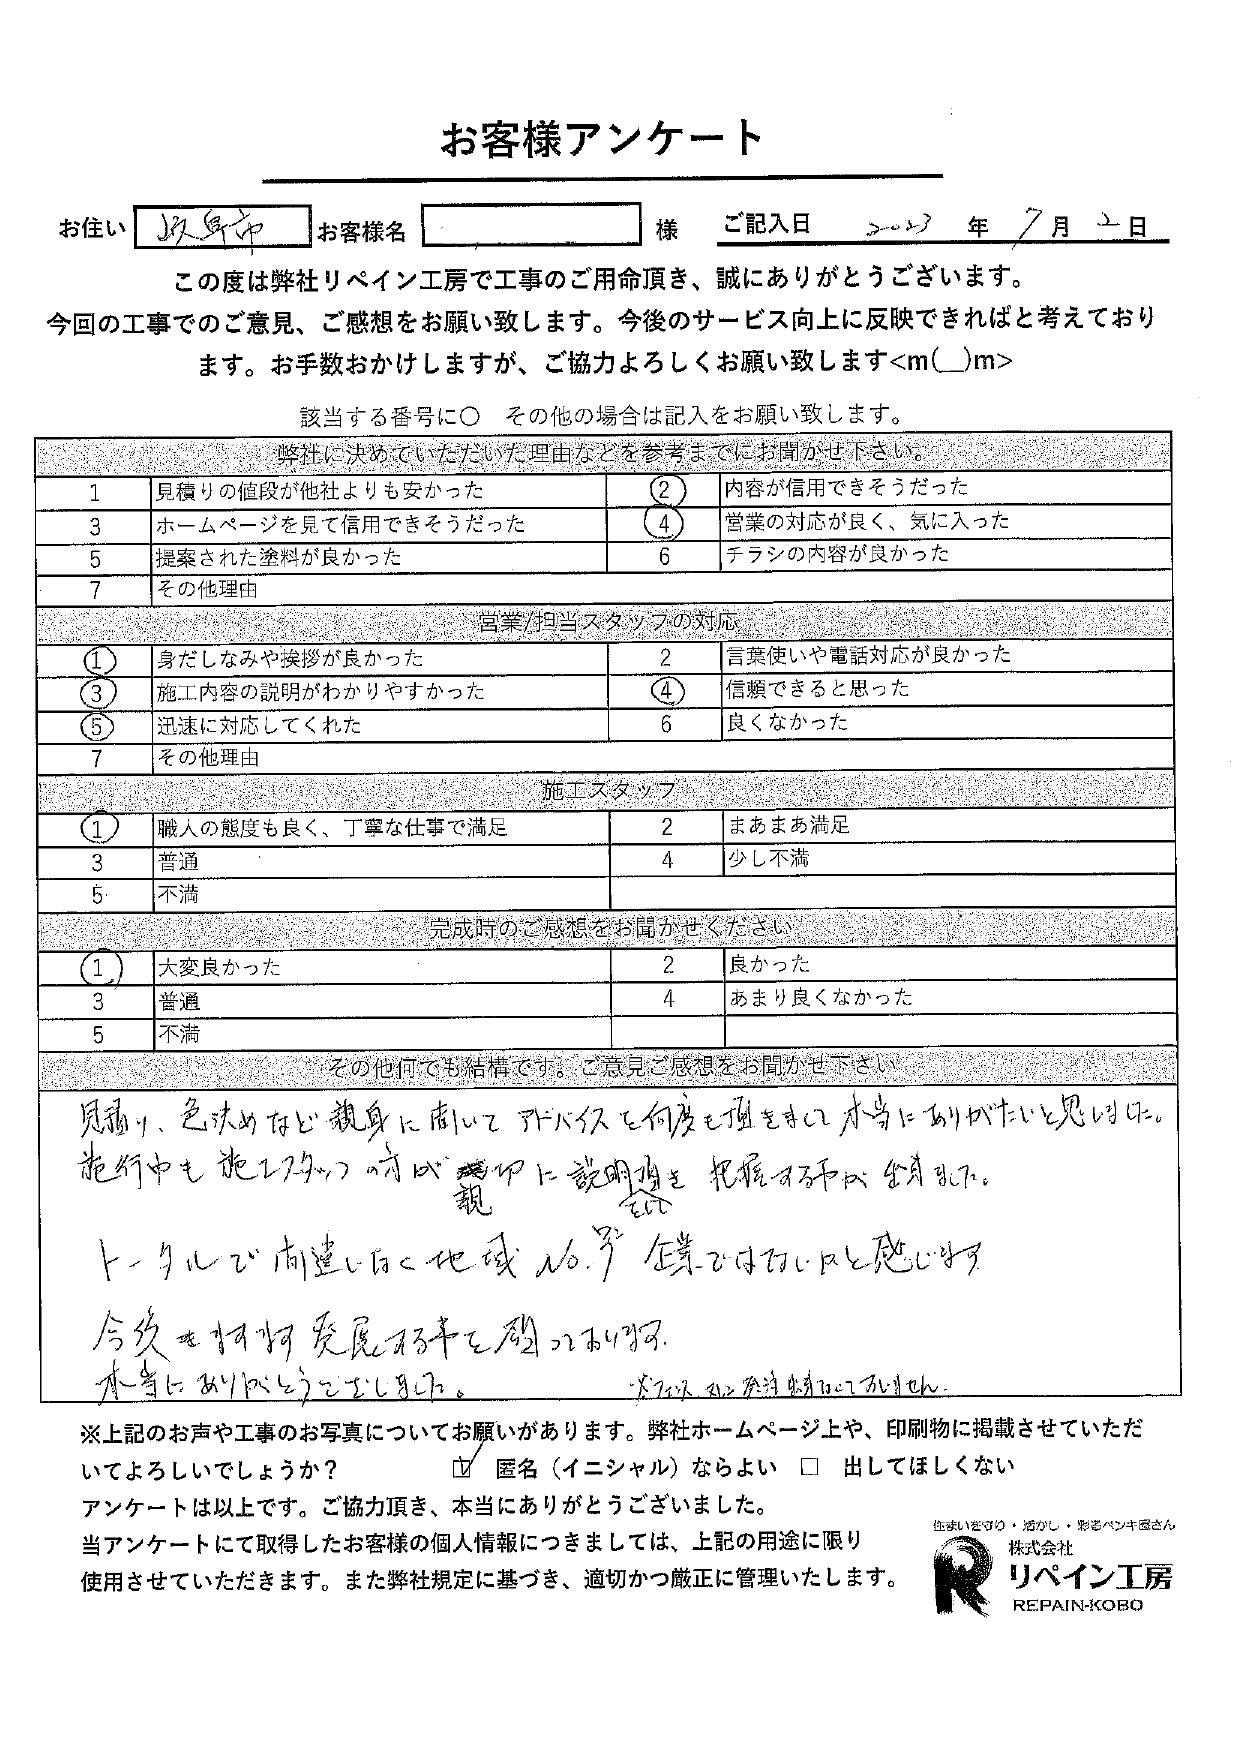 お客様アンケート
お住い 岐阜市 お客様名 様 ご記入日 2023 年 7 月 2 日
この度は弊社リペイン工房で工事のご用命頂き、誠にありがとうございます。
今回の工事でのご意見、ご感想をお願い致します。今後のサービス向上に反映できればと考えており
ます。お手数おかけしますが、ご協力よろしくお願い致します<m(__)m>
該当する番号に〇　その他の場合は記入をお願い致します。
弊社に決めていただいた理由などを参考までにお聞かせ下さい。
1 見積りの値段が他社よりも安かった 2 内容が信用できそうだった
3 ホームページを見て信用できそうだった 4 営業の対応が良く、気に入った
5 提案された塗料が良かった 6 チラシの内容が良かった
7 その他理由
営業/担当スタッフの対応
1 身だしなみや挨拶が良かった 2 言葉使いや電話対応が良かった
3 施工内容の説明がわかりやすかった 4 信頼できると思った
5 迅速に対応してくれた 6 良くなかった
7 その他理由
施工スタッフ
1 職人の態度も良く、丁寧な仕事で満足 2 まあまあ満足
3 普通 4 少し不満
5 不満
完成時のご感想をお聞かせください
1 大変良かった 2 良かった
3 普通 4 あまり良くなかった
5 不満
その他何でも結構です。ご意見ご感想をお聞かせ下さい
見積り、色決めなど親身に聞いてアドバイスを何度も頂きまして本当にありがたいと思いました。
施行中も施工スタッフの方が親切に説明頂き把握する事が出来ました。
トータルで間違いなく地域No.1企業ではないかと感じます
今後もますます発展する事を願っております。
本当にありがとうございました。
※上記のお声や工事のお写真についてお願いがあります。弊社ホームページ上や、印刷物に掲載させていただ
いてよろしいでしょうか？ ☑ 匿名（イニシャル）ならよい □ 出してほしくない
アンケートは以上です。ご協力頂き、本当にありがとうございました。
当アンケートにて取得したお客様の個人情報につきましては、上記の用途に限り
使用させていただきます。また弊社規定に基づき、適切かつ厳正に管理いたします。
住まいを守り・活かし・彩るペンキ屋さん
株式会社
リペイン工房
REPAIN-KOBO